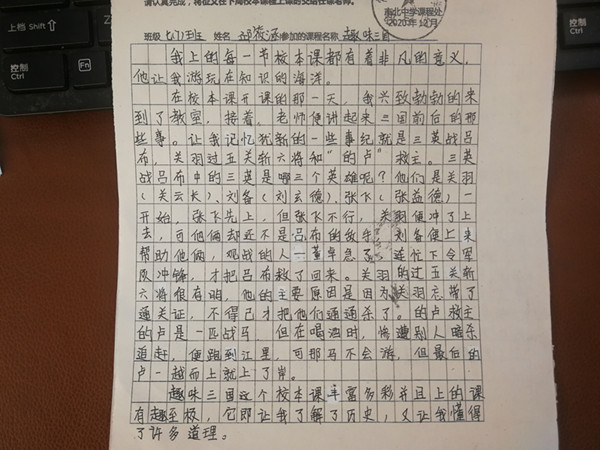 请认真完成，将征文在下周校本课程上课时交给任课老师。
南北中学课程处
2020年12月
班级 七(7)班 姓名 参加的课程名称 趣味三国
我上的每一节校本课都有着非凡的意义，
他让我游玩在知识的海洋。
在校本课开课的那一天，我兴致勃勃的来
到了教室，接着，老师便讲起来三国前后的那
些事。让我记忆犹新的一些事纪就是三英战吕
布，关羽过五关斩六将和“的卢”救主。三英
战吕布中的三英是哪三个英雄呢？他们是关羽
（关云长）、刘备（刘玄德）、张飞（张益德）一
开始，张飞先上，但张飞不行，关羽便冲了上
去，可他俩却还不是吕布的敌手，刘备便上来
帮助他俩，观战的人一董卓急了，连忙下令军
队冲锋，才把吕布救了回来。关羽的过五关斩
六将很有明，他的主要原因是因为关羽忘带了
通关证，不得已才把他们通通杀了。的卢救主
的卢是一匹战马，但在喝酒时，惨遭别人暗杀
追赶，便跑到江里，可那马不会游，但最后的
卢一越而上就上了岸。
趣味三国这个校本课丰富多彩并且上的课
有趣至极，它即让我了解了历史，又让我懂得
了许多道理。
上档 Shift
控制
Ctrl
控制
Ctrl